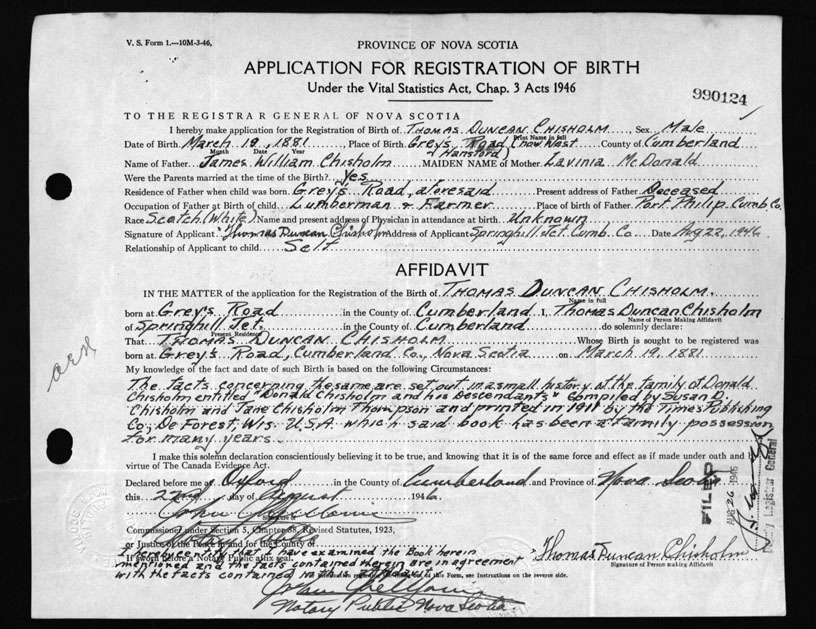 V. S. Form 1.—10M-3-46,
PROVINCE OF NOVA SCOTIA
APPLICATION FOR REGISTRATION OF BIRTH
Under the Vital Statistics Act, Chap. 3 Acts 1946
990124
TO THE REGISTRAR GENERAL OF NOVA SCOTIA
I hereby make application for the Registration of Birth of THOMAS DUNCAN CHISHOLM Sex Male
Print Name in full
Date of Birth March 19, 1881 Place of Birth Grey's Road (now West County of Cumberland
Month Date Year of Hansford)
Name of Father James William Chisholm MAIDEN NAME of Mother Lavinia McDonald
Were the Parents married at the time of the Birth? Yes
Residence of Father when child was born Grey's Road, aforesaid Present address of Father Deceased
Occupation of Father at Birth of child Lumberman & Farmer Place of birth of Father Port Philip Cumb. Co.
Race Scotch (White) Name and present address of Physician in attendance at birth Unknown
Signature of Applicant Thomas Duncan Chisholm Address of Applicant Springhill Jct. Cumb. Co. Date Aug 22, 1946
Relationship of Applicant to child Self
AFFIDAVIT
IN THE MATTER of the application for the Registration of the Birth of THOMAS DUNCAN CHISHOLM.
Name in full
born at Grey's Road in the County of Cumberland I, Thomas Duncan Chisholm
Name of Person Making Affidavit
of Springhill Jct. in the County of Cumberland do solemnly declare:
Present Residence
That THOMAS DUNCAN CHISHOLM Whose Birth is sought to be registered was
born at Grey's Road, Cumberland Co., Nova Scotia on March 19, 1881.
My knowledge of the fact and date of such Birth is based on the following Circumstances:
The facts concerning the same are set out in a small history of the family of Donald
Chisholm entitled "Donald Chisholm and his Descendants" compiled by Susan D.
Chisholm and Jane Chisholm Thompson and printed in 1911 by the Times Publishing
Co; De Forest, Wis. U.S.A. which said book has been a family possession
for many years.
I make this solemn declaration conscientiously believing it to be true, and knowing that it is of the same force and effect as if made under oath and by
virtue of The Canada Evidence Act.
Declared before me at Oxford in the County of Cumberland and Province of Nova Scotia
this 22nd day of August 1946.
Commissioned under Section 5, Chapter 38, Revised Statutes, 1923,
or Justice of the Peace in and for the County of
If sworn before a Notary Public affix seal.
I hereby certify that I have examined the Book herein
mentioned and the facts contained therein are in agreement
with the facts contained in this
of this Form, see Instructions on the reverse side.
Thomas Duncan Chisholm
Signature of Person making Affidavit
Notary Public Nova Scotia.
FILED
AUG 26 1946
Deputy Registrar General